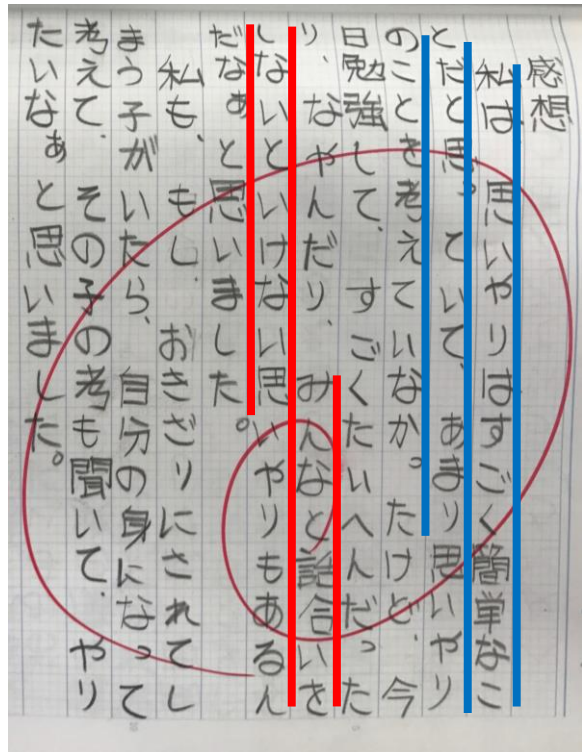 感想
私は、思いやりはすごく簡単なこ
とだと思っていて、あまり思いやり
のことを考えていなかったけど、今
日勉強して、すごくたいへんだった
り、なやんだり、みんなと話合いを
しないといけない思いやりもあるん
だなぁと思いました。
私も、もし、おきざりにされてし
まう子がいたら、自分の身になって
考えて、その子の考も聞いて、やり
たいなぁと思いました。